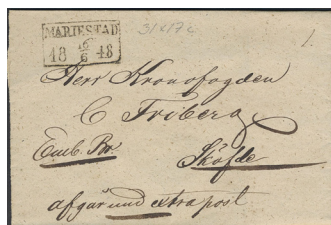 MARIESTAD
18 16/6 48
Herr Kronofogden
C Friberg
Emb. Br
Sköfde
afgår und extra post